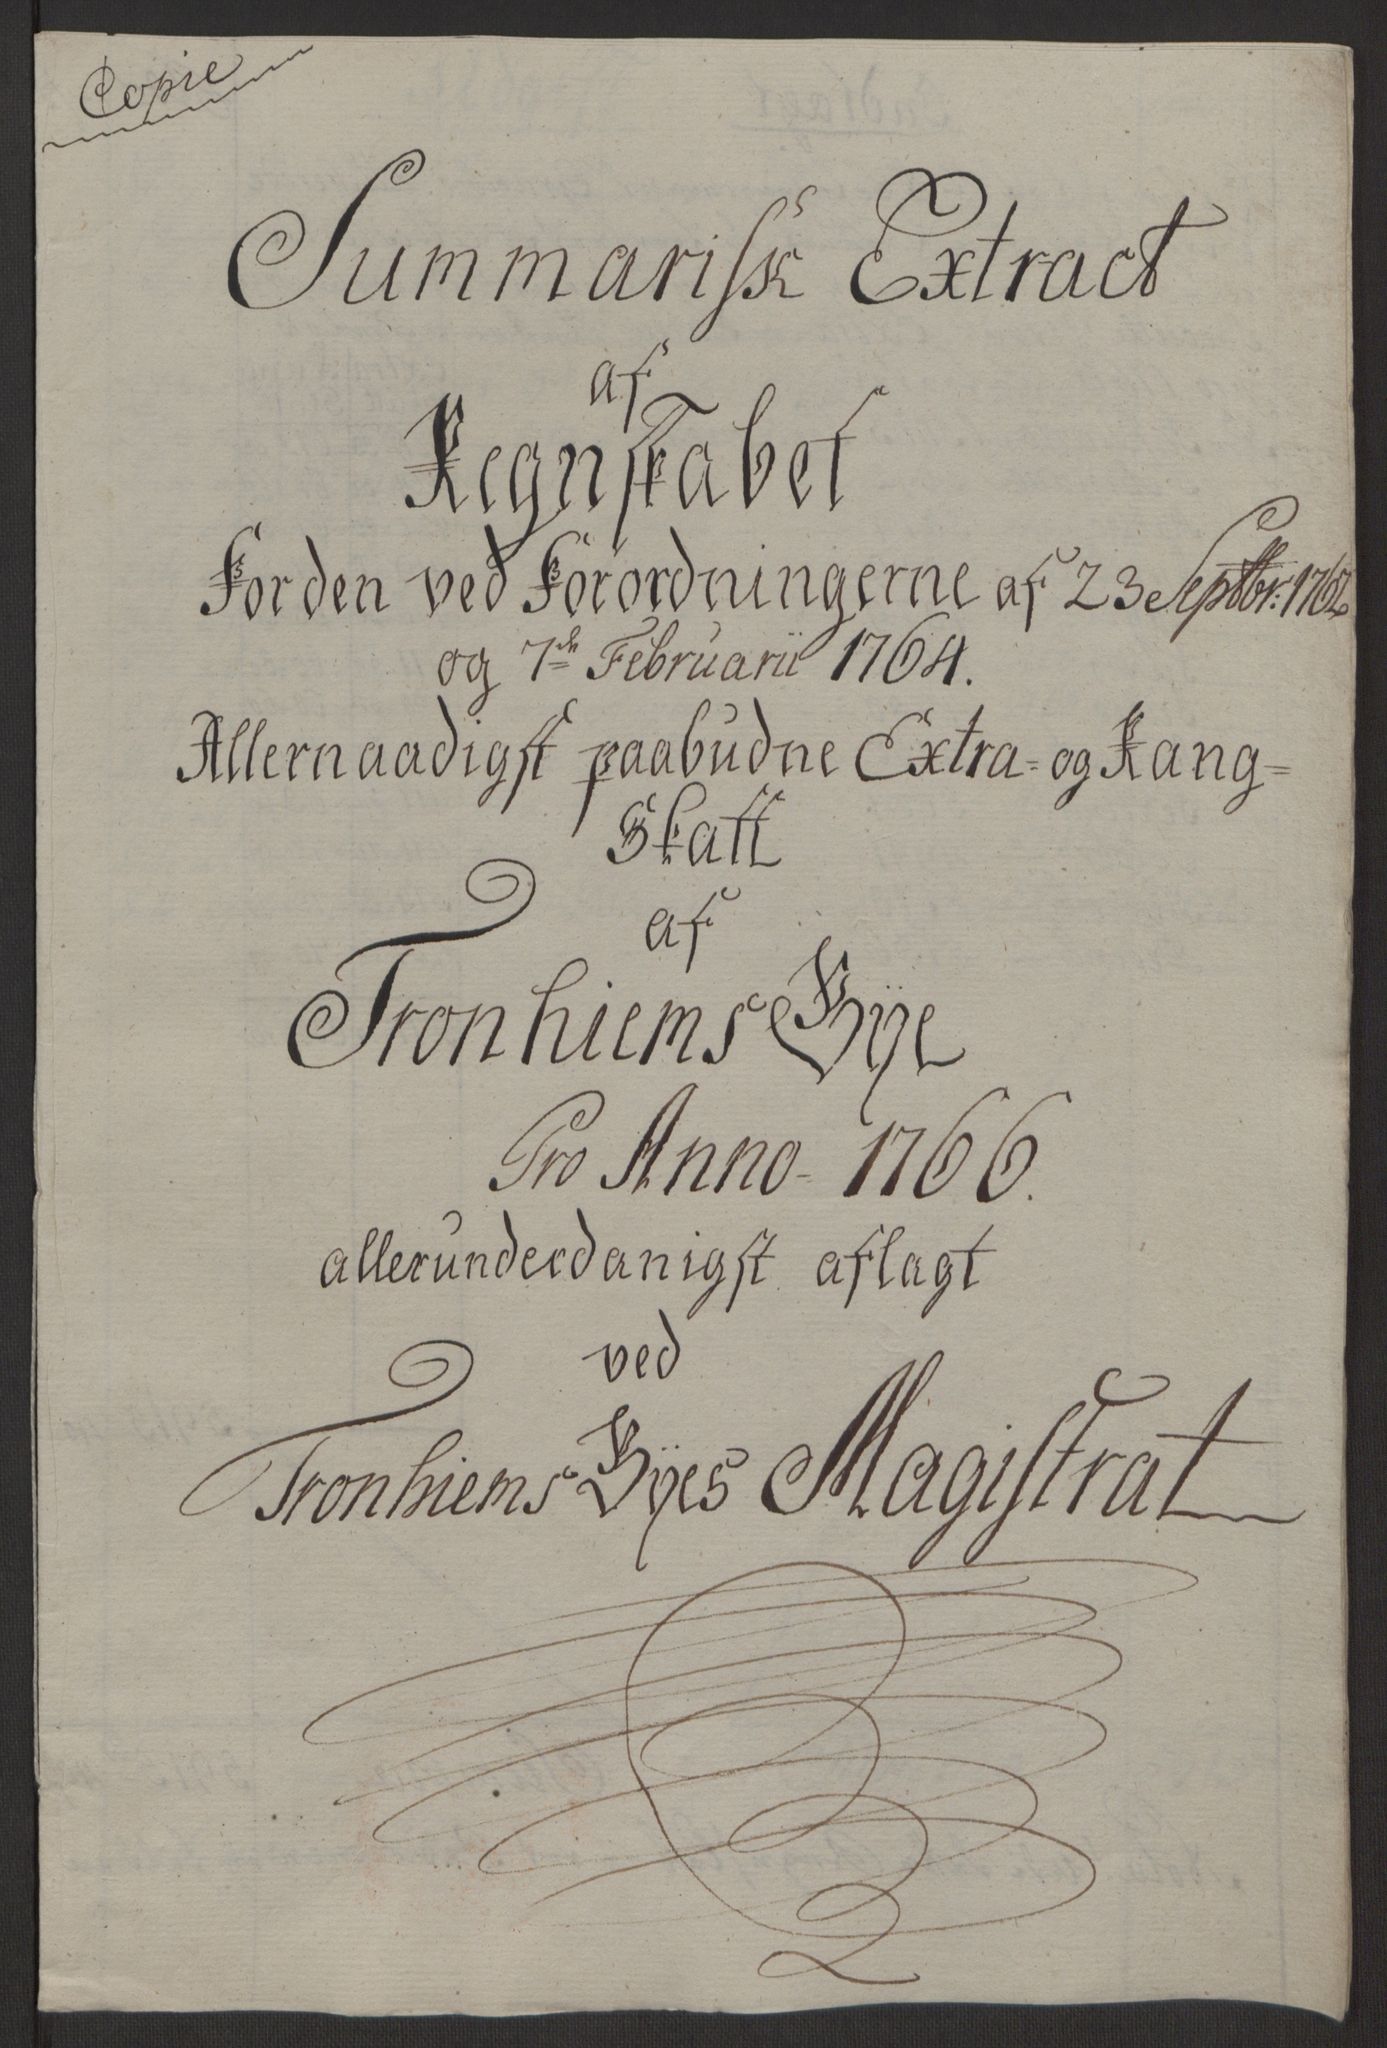 Copie
Summarisk Extract
af
Regnskabet
For den ved Forordningerne af 23 Septbr: 1762
og 7de Februarii 1764.
Allernaadigst paabudne Extra- og Rang=
Skatt
af
Tronhiems Bÿe
Pro Anno- 1766.
allerunderdanigst aflagt
ved
Tronhiems Bÿes Magistrat